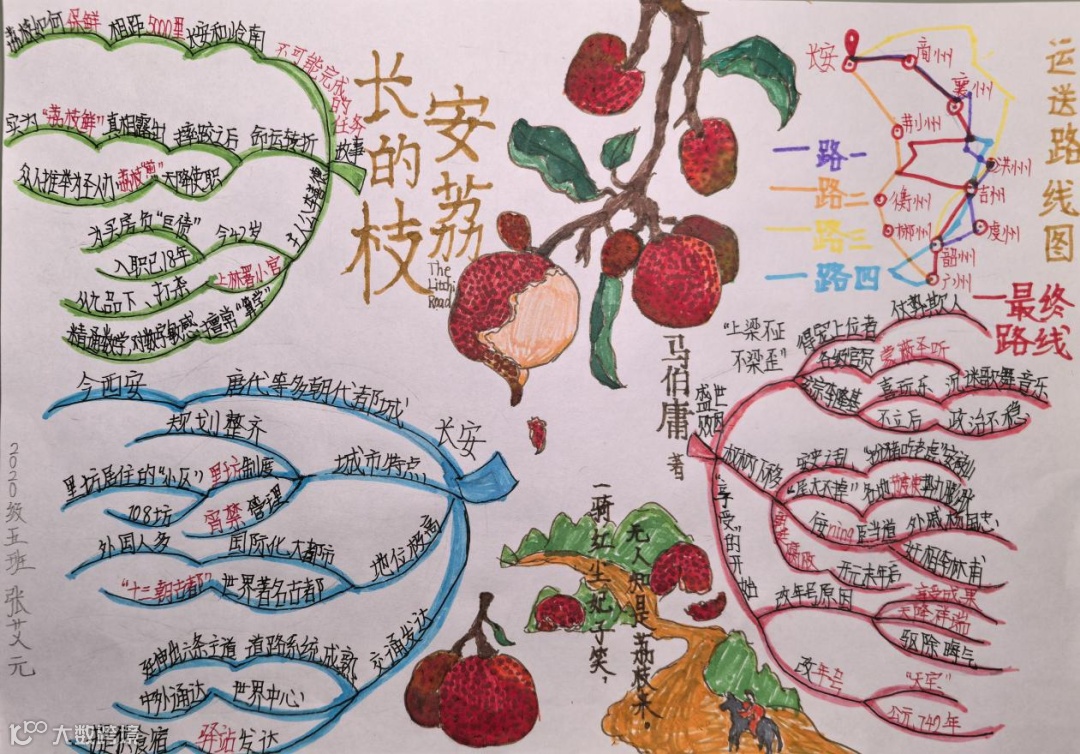 长安
的荔
枝
The
Litchi
Road
马伯庸 著
荔枝如何保鲜
相距5000里
长安和岭南
不可能完成的任务
故事
实为“荔枝鲜”
真相露出
摔跤之后
命运转折
众人推举为圣人办荔枝“煎”
天降使职
主人公李善德
为买房负“巨债”
今42岁
入职已18年
上林署小官
从九品下、打杂
精通数学,对数字敏感
擅常“算学”
长安
今西安
唐代等多朝代都城
城市特点
规划整齐
里坊居住的“小区”
里坊制度
108坊
宵禁管理
地位极高
外国人多
国际化大都市
“十三朝古都”
世界著名古都
交通发达
延伸出六条干道
道路系统成熟
中外通达
世界中心
食宿
驿站发达
运送路线图
长安
商州
襄州
荆州
洪州
吉州
衡州
郴州
虔州
韶州
广州
一路一
一路二
一路三
一路四
一最终
路线
盛世
“上梁不正
不梁歪”
得宠上位者
仗势欺人
各级官员
蒙蔽圣听
玄宗李隆基
喜而乐
沉迷歌舞音乐
不立后
政治不稳
“尾大不掉”
各地
佞ning臣当道
外戚杨国忠
奸相李林甫
开元末年后
“享受”的开始
改年号原因
享受成果
天降祥瑞
驱除晦气
改年号
“天宝”
公元742年
一骑红尘妃子笑,
无人知是荔枝来。
2020级五班 张艾元
大数跨境